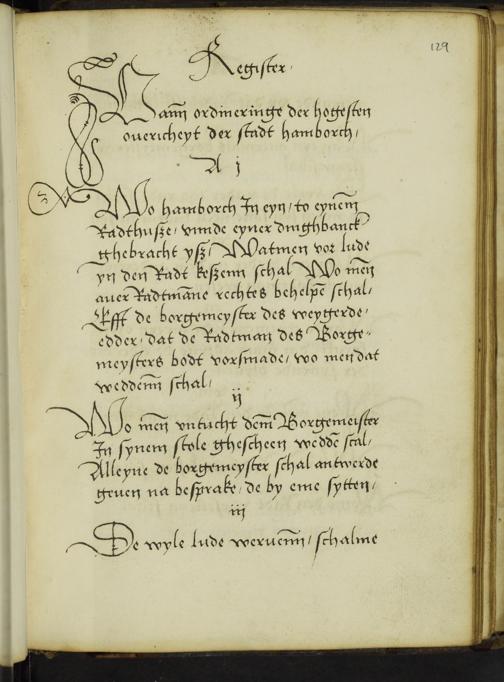 129
Register.
Vann ordineringe der hogesten
ouericheyt der stadt hamborch,
A j
Wo hamborch In eyn, to eynem̄
Radthusze, vnnde eyner dinghbanck
ghebracht ysz, Watmen vor lude
yn den Radt keszenn schal Wo men̄
auer Radtman̄e rechtes behelpē schal,
Efft de borgemeyster des weygerde,
edder, dat de Radtman des Borge-
meysters bodt vorsmade, wo men dat
weddenn̄ schal,
ij
Wo men̄ vntucht dem̄ Borgemeister
In synem stole ghescheen weddē scal,
Alleyne de borgemeyster schal antwerde
geuen na besprake, de by eme sytten,
iij
De wyle lude weruenn̄, schalme